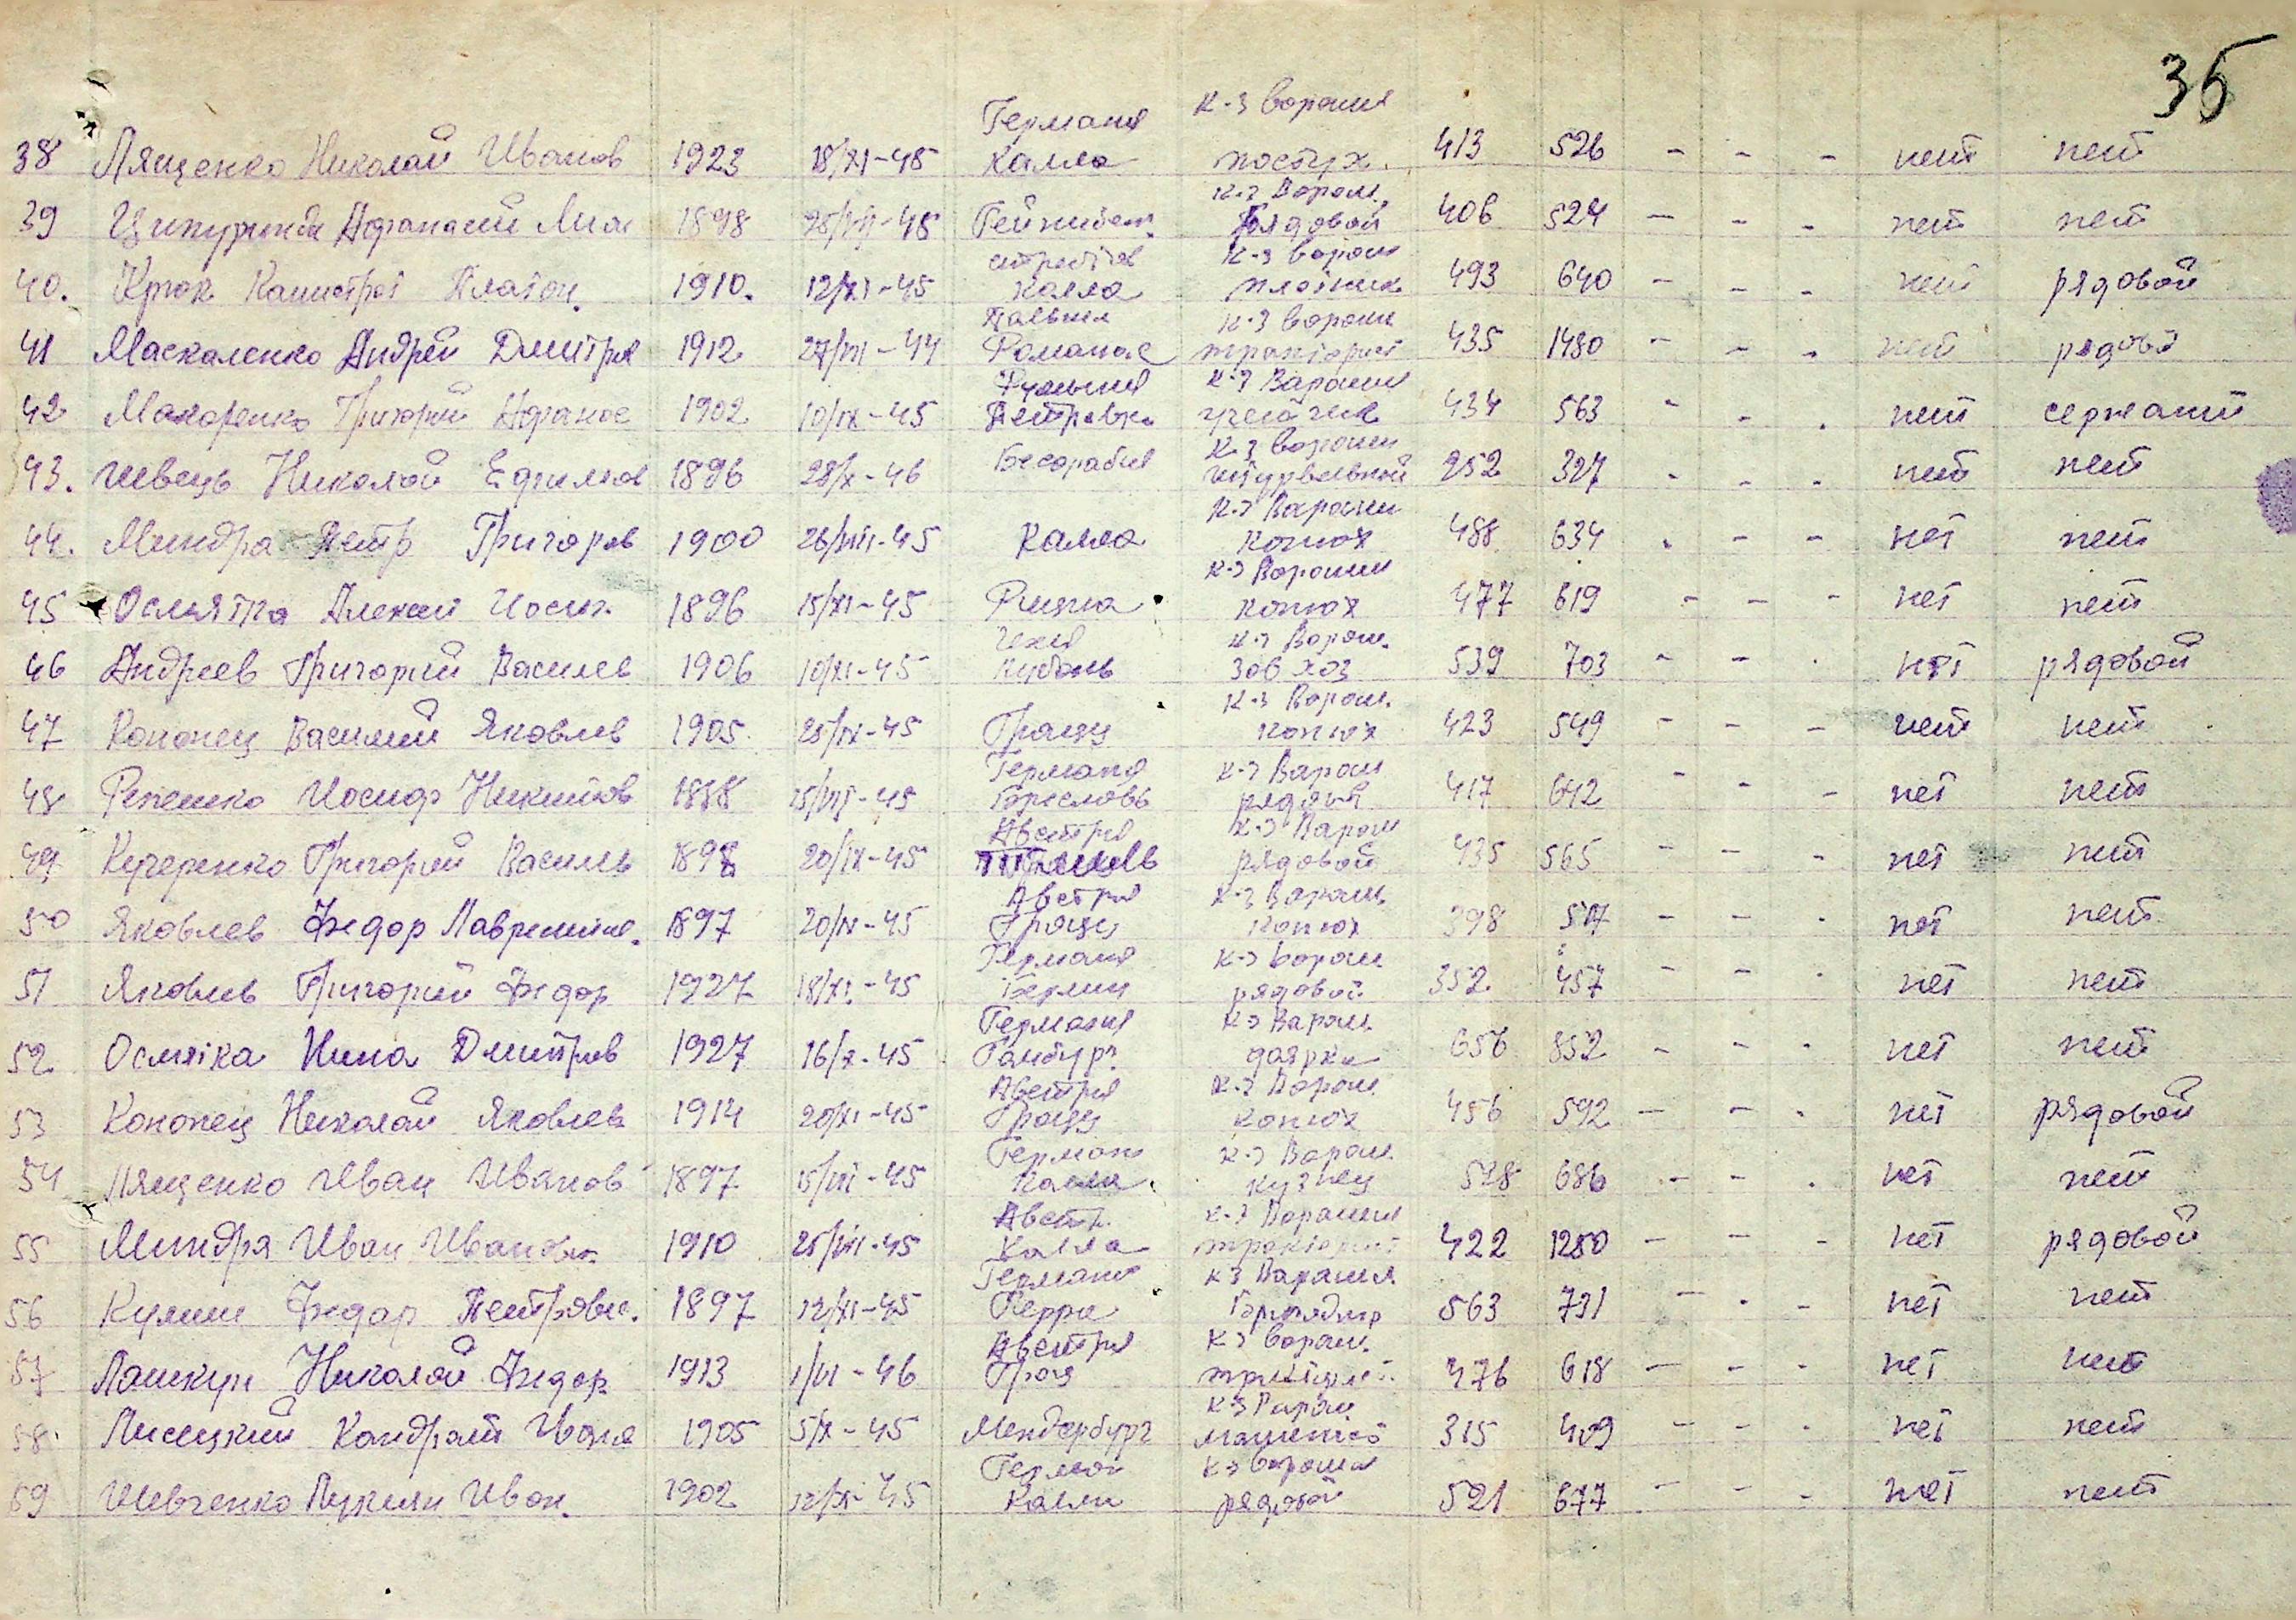 35
38 Лященко Николай Иванов 1923 18/XI-45 Германия Калла к-зВорошил пастух 413 526 - - - нет нет
39 Афанасий 1898 45 к-з Ворош. рядовой 406 524 - - - нет нет
40. Крюк Калистрат Платон. 1910. 12/XI-45 Калла к-з Ворош плотник 493 640 - - - нет рядовой
41 Маскаленко Андрей Дмитрие 1912 27/VII-44 Романов к-з Ворош тракторист 435 1480 - - - нет рядовой
42 Макаренко Григорий Афанас 1902 10/IX-45 Румыния Петровка к-з Варошил 434 563 - - . нет сержант
43. Швець Николай Ефимов 1896 28/X-46 Бесорабия к-з Ворошил штурвальной 252 327 - - - нет нет
44. Миндра Петр Григоров 1900 26/VIII-45 Калла к-з Варошил конюх 488 634 . - - нет нет
45 Осмятка Алексей Иосип. 1896 15/XI-45 к-з Ворошил конюх 477 619 - - - нет нет
46 Андреев Григорий Василев 1906 10/XI-45 Чехия к-з Ворош. зав хоз 539 703 - - . нет рядовой
47 Кононец Василий Яковлев 1905 25/IX-45 Грацц к-з Ворош. конюх 423 549 - - - нет нет
48 Репешко Иосиф Никитов 1888 15/VII-45 Германия к-з Варош рядовой 417 642 - - - нет нет
49 Кучеренко Григорий Василь 1898 20/IX-45 Австрия к-з Варош рядовой 435 565 - - - нет нет
50 Яковлев Федор Лаврентие. 1897 20/IX-45 Австрия Грацц к-з Варошь конюх 398 517 - - . нет нет
51 Яковлев Григорий Федор 1927 18/XI-45 Германия Берлин к-з Ворош рядовой 352 457 - - . нет нет
52 Осмятка Нина Дмитров 1927 16/X-45 Германия Гамбург к-з Варош. доярка 656 852 - - - нет нет
53 Кононец Николай Яковлев 1914 20/XI-45 Австрия Грацц к-з Ворош конюх 456 592 - - . нет рядовой
54 Лященко Иван Иванов 1897 15/VII-45 Герман Калла к-з Ворош. кузнец 528 686 - - . нет нет
55 Миндря Иван Иванов 1910 25/VIII-45 Австр. Калла к-з Ворошил тракторист 422 1280 - - - нет рядовой
56 Кулиш Федар Петрови. 1897 12/XI-45 Германия Герра к-з Варошил бригадир 563 731 - . - нет нет
57 Пашкун Николай Федор 1913 1/VI-46 Австрия Грац к-з Ворош. 476 618 - - - нет нет
58. Лисецкий Кондрат Ивана 1905 5/X-45 Мендербург к-з Варош машинист 315 409 - - . нет нет
59 Шевченко Лукиян Иван. 1902 12/XI-45 Герман Калли к-з Ворошил рядовой 521 677 - - - нет нет